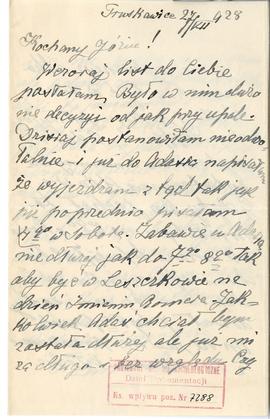 Truskawiec 27/VII 928
Kochany Józiu!
Wczoraj list do Ciebie
posłałam. Było w nim dużo
nie decyzji od jak przy upale.
Dzisiaj postanowiłam nieodwo
łalnie i już do Adasia napisałam
że wyjeżdżam z tąd tak jak
już poprzednio pisałam
w Sobotę. Zabawię u Adasia
nie dłużej jak do 7
aby być w Leszczkowie na
dzień Imienin Jak-
kolwiek Adaś chciał bym
została dłużej, ale już mi
za długo i bez względu Czy
Dział Dokumentacji
Ks. wpływu poz. Nr 7288